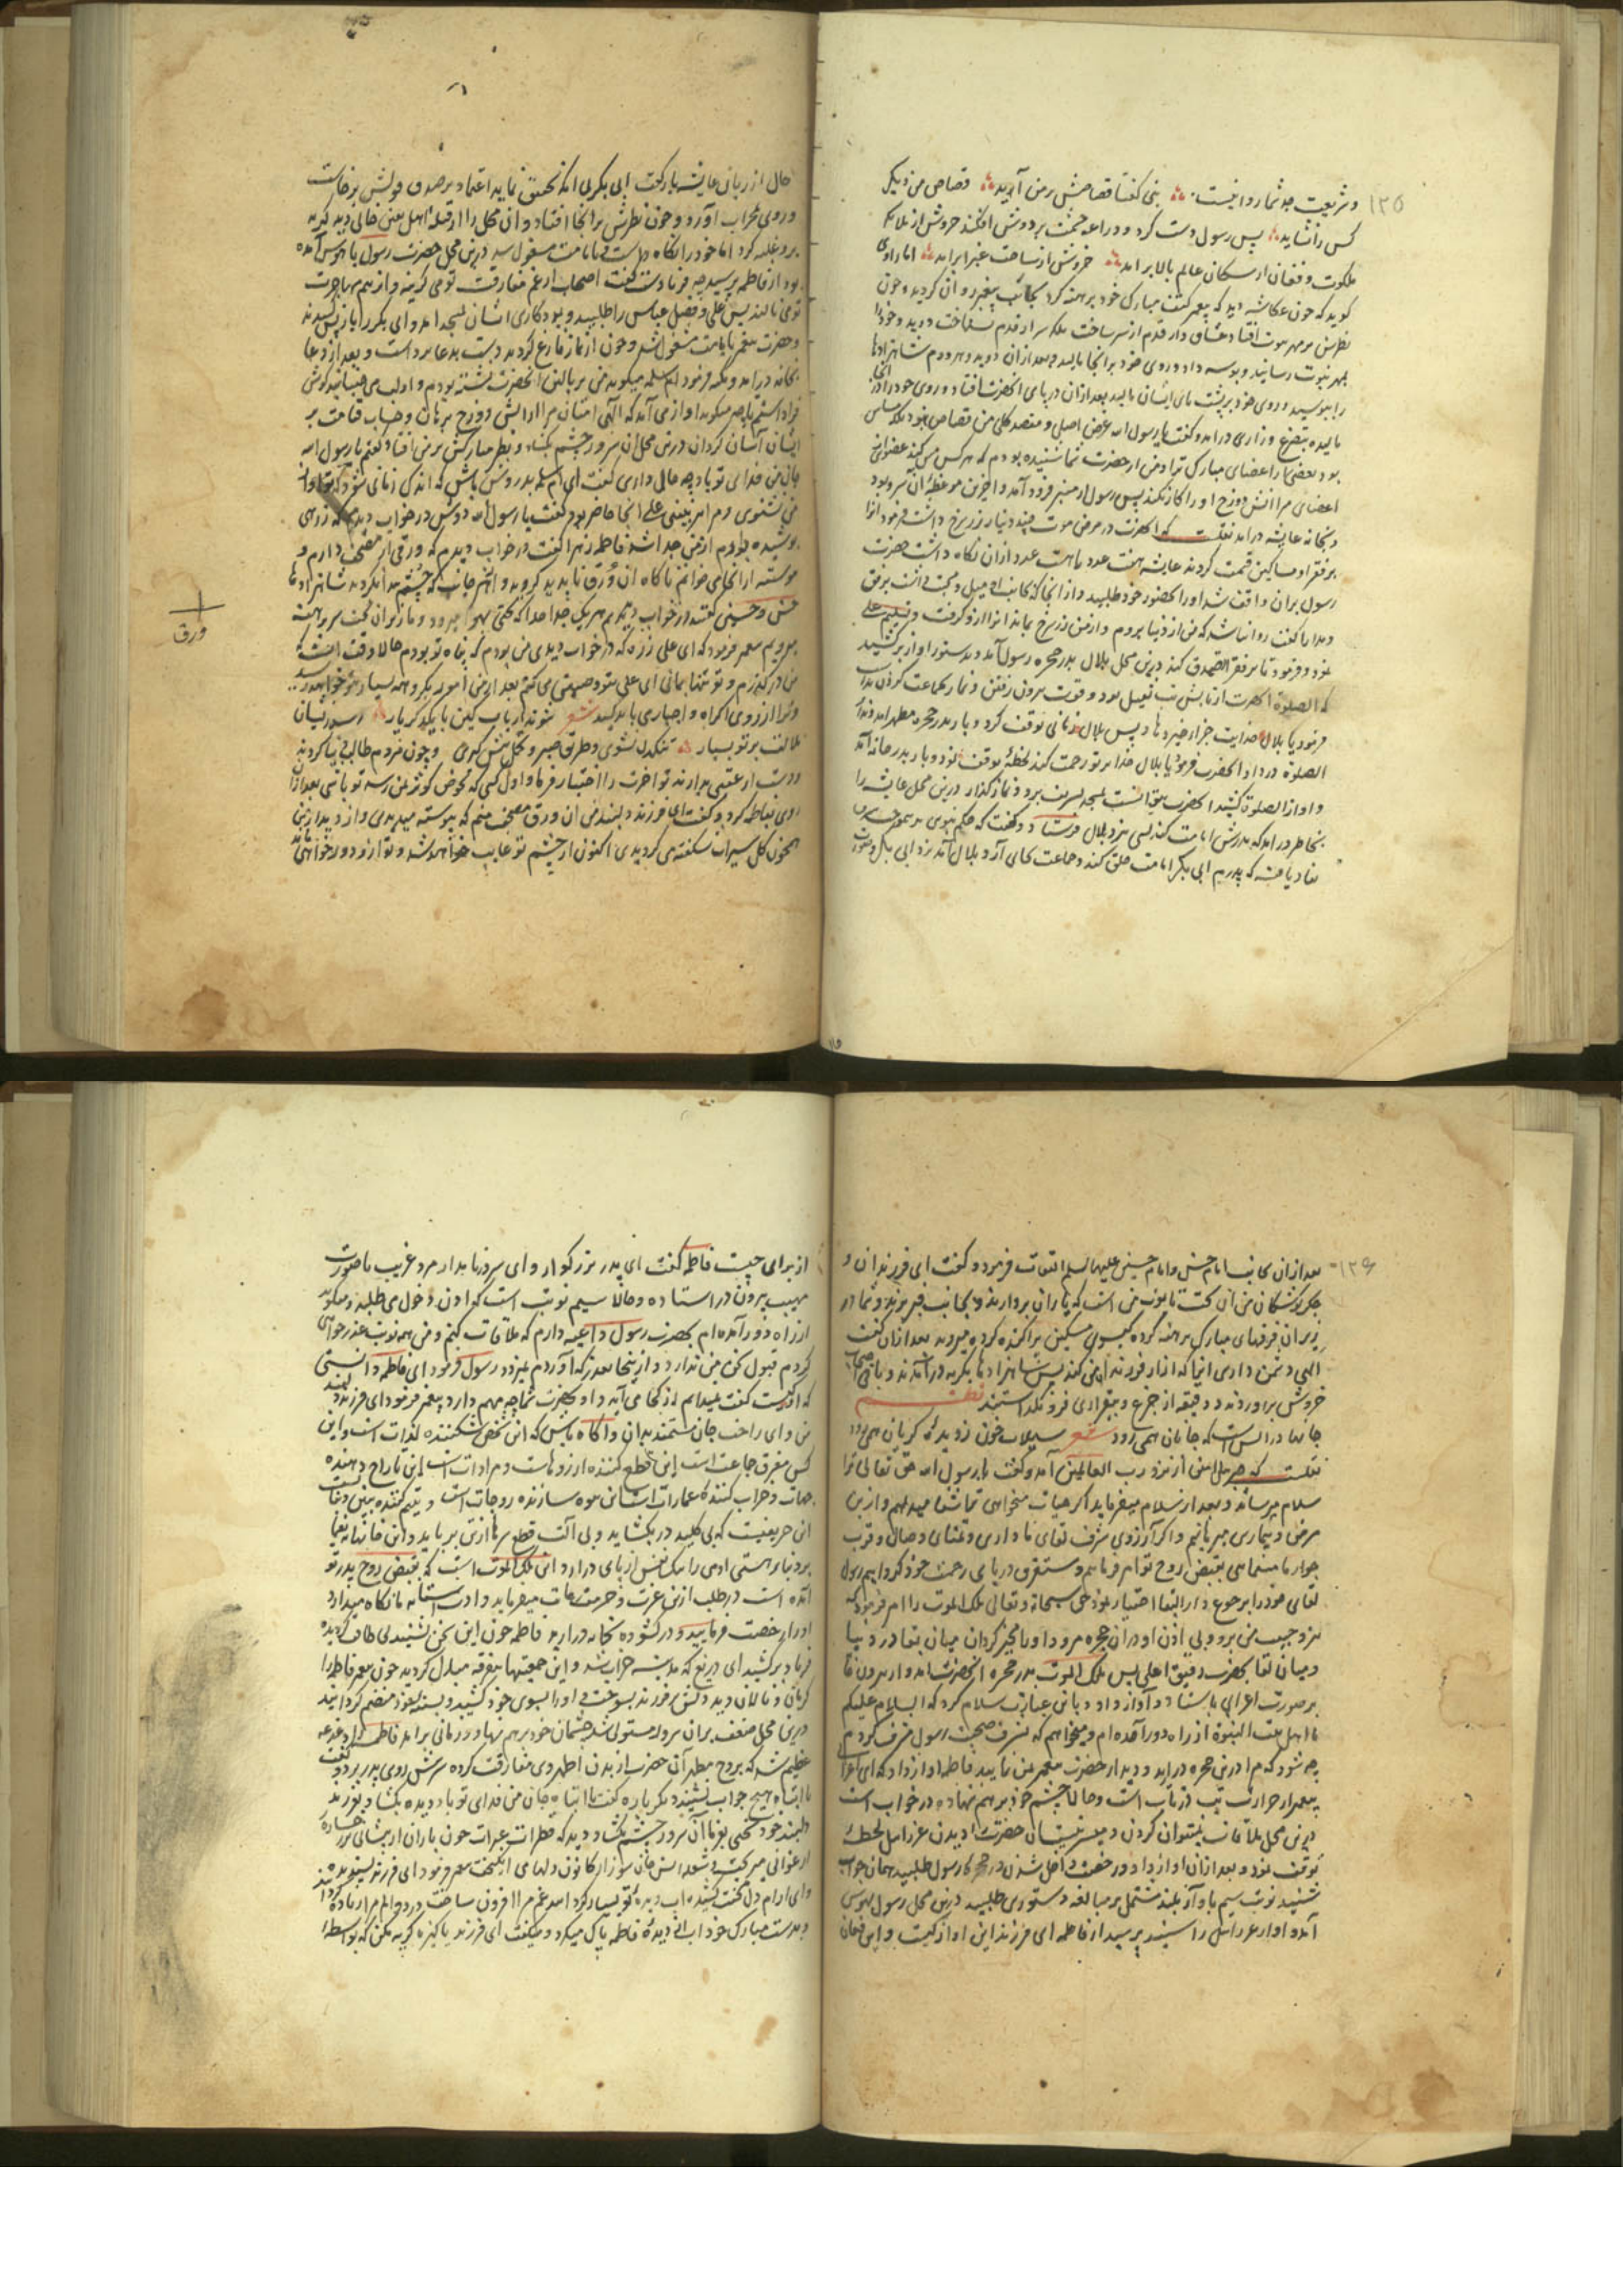 ۱۲۵
و شریعت جد شما روا نیست بنی گفتا قصاصش بر من آرید قصاص من دیگر
کس را نشاید پس رسول دست کرد و دراعه خشت بر دوش افکند خروش از ملائکه
ملکوت و فغان از سکان عالم بالا بر آمد خروش از ساحت غبرا بر آمد اما راوی
گوید که چون عکاشه دید که پیغمبر کتف مبارک خود برهنه کرد بجانب پیغمبر روان گردید و چون
نظرش بر مهر نبوت افتاد عشاق وار قدم از سر ساخت بلکه سر از قدم نشناخت دوید و خود را
بمهر نبوت رسانید و بوسه داد و روی خود بر آنجا مالید و بعد از آن دوید و هر دو شاهزادها
را ببوسید و روی خود بر پشت پای ایشان مالید بعد از آن در پای آنحضرت افتاد و روی خود را در آنجا
مالیده بتضرع و زاری در آمد و گفت یا رسول الله غرض اصلی و مقصد کلی من قصاص نبود بلکه
بود بعضی را اعضای مبارک ترا و من از حضرت شما شنیده بودم که هر کس
اعضای مرا آتش دوزخ او را کار نکند پس رسول از منبر فرود آمد و آخرین موعظه آن سرور بود
و بخانه عایشه در آمد نقلست که آنحضرت در مرض موت چند دینار زر سرخ داشت فرمود آنرا
بر فقرا و مساکین قسمت کردند عایشه هفت عدد یا هشت عدد از آن نگاه داشت حضرت
رسول بر آن واقف شد او را بحضور خود طلبید و از آنجا که بجانب او میل و محبت داشت برفق
و مدارا گفت روا نباشد که من از دنیا بروم و از من زر سرخ بماند آنرا ازو گرفت و تسلیم علی
نمود و فرمود تا بر فقرا تصدق کند درین محل بلال بدر حجره رسول آمد و بدستور آواز بر کشید
که الصلوة آنحضرت از تابش تب ثقیل بود و قوت بیرون رفتن و نماز بجماعت کردن
فرمود یا بلال خدایت جزاء خیر دهاد پس بلال زمانی توقف کرد و بار دیگر بدر حجره مطهر آمد و ندای
الصلوة در داد آنحضرت فرمود یا بلال خدا بر تو رحمت کند لحظه توقف نمود و بار بدر خانه آمد
و آواز الصلوة کشید آنحضرت نتوانست بمسجد شریف برد و نماز گذارد درین محل عایشه را
بخاطر در آمد که پدرش امامت کند کسی نزد بلال فرستاد و گفت که حکم نبوی
نفاذ یافته که پدرم ابی بکر امامت خلق کند و جماعت بجای آرد و بلال آمد نزد ابی بکر و صورت
حال از زبان عایشه باز گفت ابی بکر بی آنکه تحقیق نماید اعتماد بر صدق قولش بر خاست
و روی بمحراب آورد و چون نظرش بر آنجا افتاد و آن محل را از قبله اهل یقین خالی دید گریه
برو غلبه کرد اما خود را نگاه داشت بامامت مشغول شد درین محل حضرت رسول با هوش آمده
بود از فاطمه پرسید چه فریادست گفت اصحاب از غم مفارقت تو می گریند و از بیم مهاجرت
تو می نالند پس علی و فضل عباس را طلبید و بمددکاری ایشان بمسجد آمد و ابی بکر را باز پس کشیدند
و حضرت پیغمبر بامامت مشغول شد و چون از نماز فارغ گردید دست بدعا برداشت و بعد از دعا
بخانه در آمد و تکیه فرمود ام سلمه میگوید من بر بالین آنحضرت نشسته بودم و او لب می جنبانید گوش
فرا داشتم تا چه میگوید آواز می آمد که الهی امتان مرا از آتش دوزخ برهان و حساب قیامت بر
ایشان آسان گردان درین محل آن سرور چشم بگشاد و نظر مبارکش بر من افتاد گفتم یا رسول الله
جان من فدای تو باد چه حال داری گفت ای ام سلمه بدرود من باش که اندک زمانی شود که تو آواز
من نشنوی و مرا نبینی علی آنجا حاضر بود گفت یا رسول الله دوش در خواب دیدم که زرهی
پوشیده بودم از من جدا شد فاطمه زهرا گفت در خواب دیدم که ورقی از مصحف دارم و
پیوسته از آنجا می خوانم ناگاه آن ورق ناپدید گردید و از هر جانب که چشم می گردید شاهزادها
حسن و حسین گفتند در خواب دیدیم هر یک جدا جدا که تختی بهوا میرود و ما در زیر آن تخت سر برهنه
میرویم پیغمبر فرمود که ای علی زره که در خواب دیدی من بودم که پناه تو بودم حالا وقت آنست
من در گذرم و تو تنها بمانی ای علی بتو وصیتی می کنم بعد از من امور مکروهه بسیار بتو خواهد رسید
و ترا از روی اکراه و اجباری باید کشید شعر شوند ارباب کین با یکدگر یار رسد زیشان
ملالت بر تو بسیار تنگدل نشوی و طریق صبر و تحمل پیش گیری و چون مردم طالب دنیا گردند
دست از عقبی بدارند تو آخرت را اختیار فرما و اول کسی که بحوض کوثر بمن رسد تو باشی بعد از آن
روی بفاطمه کرد و گفت ای فرزند دلبند من آن ورق مصحف منم که پیوسته میدیدی و از دیدار من
همچون گل سیراب شکفته می گردیدی اکنون از چشم تو غایب خواهد شد و تو ازو دور خواهی ماند
ورق
۱۲۶
بعد از آن بجانب امام حسن و امام حسین علیهما السلم التفات فرمود و گفت ای فرزندان و
جگر گوشگان من آن تخت تابوت من است که یاران بردارند و بجانب قبر برند و شما در
زیر آن فرقهای مبارک برهنه کرده گیسوی مشکین پراکنده کرده میروید بعد از آن گفت
الهی دشمن داری آنها که آزار فرزندان من کنند پس شاهزادها بگریه در آمدند و باقی اصحاب
خروش برآوردند و دقیقه از جزع و بیقراری فرو نگذاشتند نظم
جانها در آتش است که جانان همی رود شعر سیلاب خون ز دیده گریان همی رود
نقلست که جبرئیل امین از نزد رب العالمین آمد و گفت یا رسول الله حق تعالی ترا
سلام میرساند و بعد از سلام میفرماید اگر حیات میخواهی تمامی شفا میدهم و ازین
مرض و بیماری میرهانیم و اگر آرزوی شرف لقای ما داری و تمنای وصال و قرب
جوار ما مینمائی بقبض روح تو امر فرمایم و مستغرق دریای رحمت خود گردانیم رسول
لقای خود را برجوع دار البقا اختیار نمود حق سبحانه و تعالی ملک الموت را امر فرمود که
نزد حبیب من برو و بی اذن او در آن حجره مرو و او را مخیر گردان میان بقا در دنیا
و میان لقا بحضرت رفیق اعلی پس ملک الموت بدر حجره آنحضرت آمد و از بیرون خانه
بر صورت اعرابی بایستاد و آواز داد و باین عبارت سلام کرد که السلام علیکم
یا اهل بیت النبوة از راه دور آمده ام و میخواهم که بشرف صحبت رسول مشرف گردم
چه شود که مرا درین حجره در آرید و دیدار حضرت پیغمبر بمن نمایید فاطمه آواز داد که ای اعرابی
پیغمبر از حرارت تب در تاب است و حالا چشم خود بر هم نهاده در خواب است
درین محل ملاقات نمیتوان کردن و میسر نیست آن حضرت را دیدن عزرائیل لحظه
توقف نمود و بعد از آن آواز داد و رخصت داخل شدن در حجره رسول طلبید همان جواب
شنید نوبت سیم بآواز بلند مشتمل بر مبالغه دستوری طلبید درین محل رسول بهوش
آمد و آواز عزرائیل را شنید پرسید از فاطمه ای فرزند این آواز کیست و این فغان
از برای چیست فاطمه گفت ای پدر بزرگوار و ای سرور نامدار مرد غریب با صورت
مهیب بیرون در استاده و حالا سیم نوبت است که اذن دخول می طلبد و میگوید
از راه دور آمده ام بحضرت رسول داعیه دارم که ملاقات کنم و من هر نوبت عذر خواهی
کردم قبول سخن من ندارد و ازینجا بعذر که آوردم نمیرود رسول فرمود ای فاطمه دانستی
که او کیست گفت نمیدانم از کجا می آید و او بحضرت شما چه مهم دارد پیغمبر فرمود ای فرزند دلبند
من و ای راحت جان مستمند بدان و آگاه باش که این شخص شکننده لذات است و این
کس مفرق جماعت است این قطع کننده آرزوهاست و مرادات است این تاراج دهنده
حیات و خراب کننده عمارات است این بیوه سازنده زوجات است و یتیم کننده بنین و بنات
این حریفیست که بی کلید در بگشاید و بی آلت قطع سرها از تن برباید و این خانه
بر دنیا و هستی آدمی را یک نفس از پای در آرد این ملک الموت است که بقبض روح پدر تو
آمده است در طلب اذن عزت و حرمت مات میفرماید و ادب استانه ما نگاه میدارد
او را رخصت فرمایید و در گشوده بخانه در آرید فاطمه چون این سخن بشنید بی طاقت گردیده
فریاد بر کشید ای دریغ که مدینه خراب شد و این جمعیتها بتفرقه مبدل گردید چون پیغمبر فاطمه را
گریان و نالان دید دلش بر فرزند بسوخت و او را بسوی خود کشید و بسینه خود منضم گردانید
درین محل ضعف بر آن سرور مستولی شد چشمان خود بر هم نهاد و زمانی بر آمد فاطمه را دغدغه
عظیم شد که روح مطهر آن حضرت از بدن اطهر وی مفارقت کرده سرش روی پدر برد و گفت
یا ابتاه هیچ جواب نشنید دیگر باره گفت یا ابتاه جان من فدای تو باد دیده بگشا و بفرزند
دلبند خود سخنی بفرما آن سرور چشم بگشاد و دید که قطرات عبرات چون باران از پیشانی بر رخساره
ارغوانی میریخت و شعله آتش جان سوز از کانون دلها می انگیخت پیغمبر فرمود ای فرزند پسندیده من
و ای آرام دل محنت کشیده آب دیده تو بسیار کرد آمد غم مرا افزون ساخت درد و الم مرا زیاده کرد
و بدست مبارک خود آب از دیده فاطمه پاک میکرد و میگفت ای فرزند پاکیزه گریه مکن که بواسطه